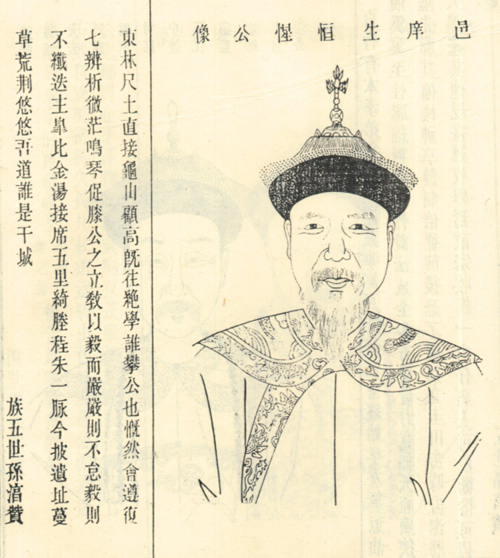 邑庠生恒惺公像
東林尺土直接龜山顧高旣往絕學誰攀公也慨然會遵復
七辨析微茫鳴琴促膝公之立敎以毅而嚴嚴則不怠毅則
不纖迭主臯比金湯接席五里綺塍程朱一脈今披遺址蔓
草荒荆悠悠吾道誰是干城
族五世孫 贊